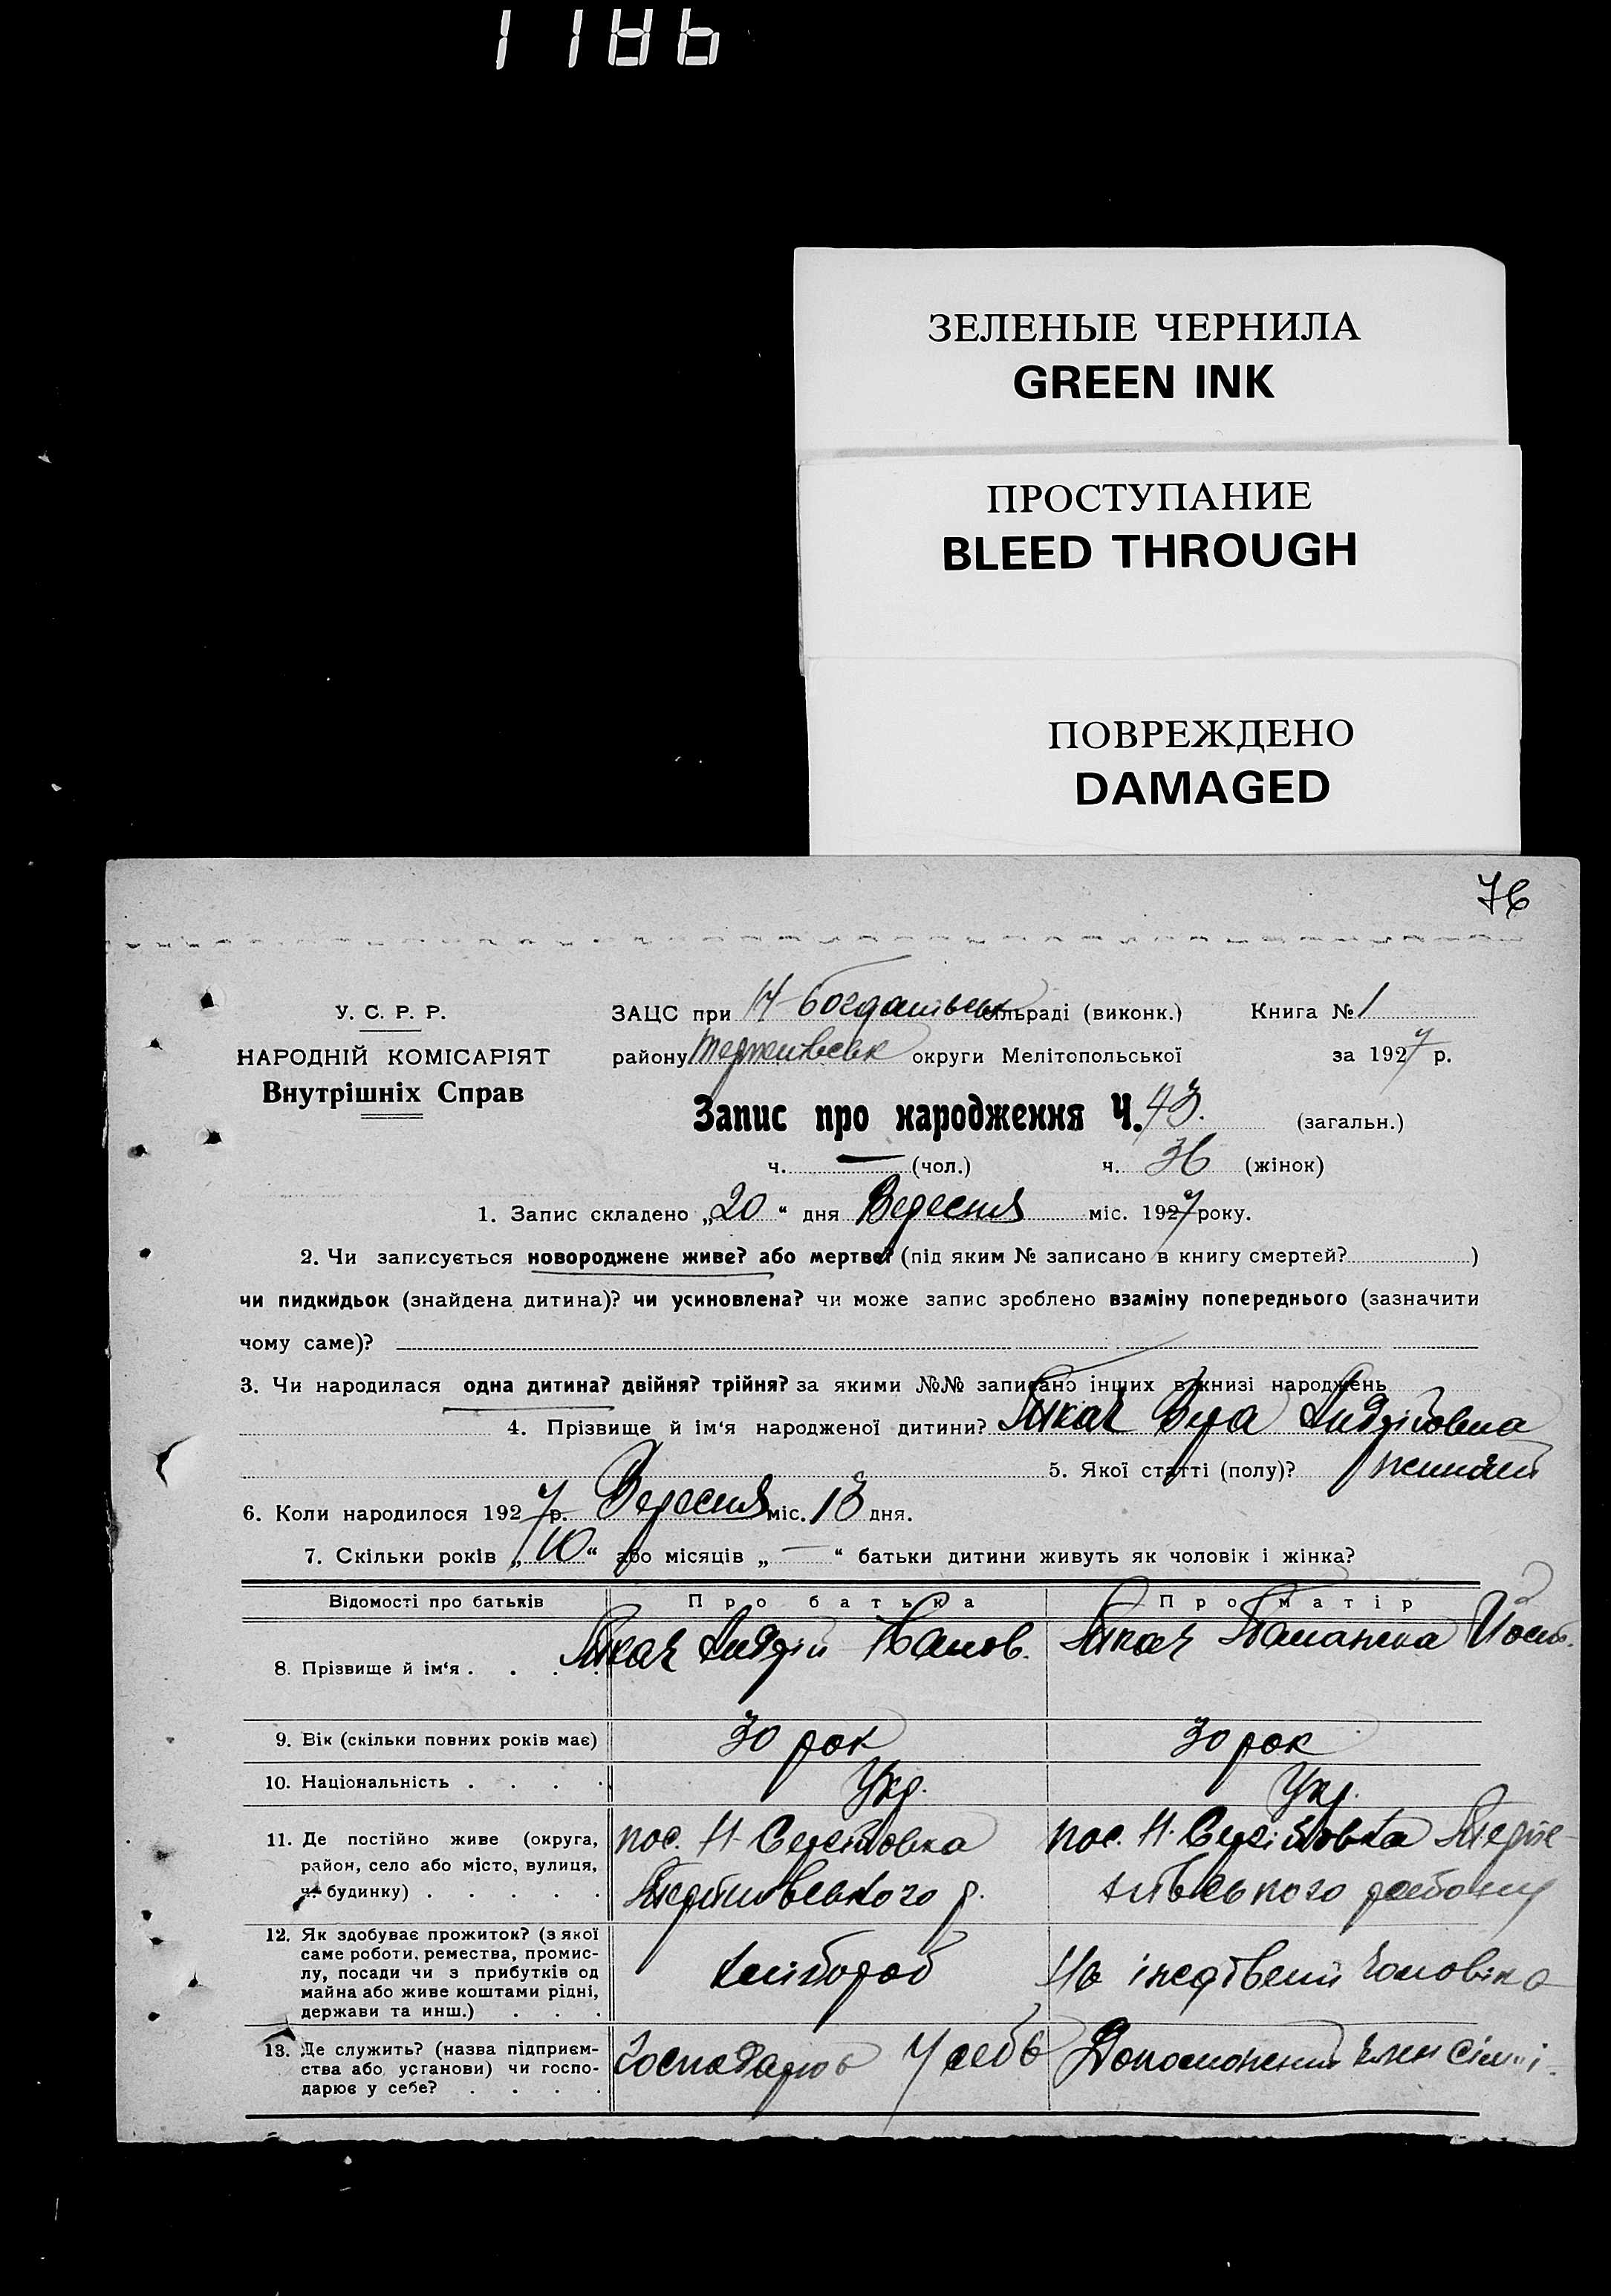 1186
ЗЕЛЕНЫЕ ЧЕРНИЛА
GREEN INK
ПРОСТУПАНИЕ
BLEED THROUGH
ПОВРЕЖДЕНО
DAMAGED
76
У. С. Р. Р.
НАРОДНІЙ КОМІСАРІЯТ
Внутрішніх Справ
ЗАЦС при Н-Богданівськ сільраді (виконк.) Книга № 1
району округи Мелітопольської за 1927 р.
Запис про народження Ч. 43. (загальн.)
ч. — (чол.) ч. 36 (жінок)
1. Запис складено „20“ дня Вересня міс. 1927 року.
2. Чи записується новороджене живе? або мертве? (під яким № записано в книгу смертей? )
чи пидкидьок (знайдена дитина)? чи усиновлена? чи може запис зроблено взаміну попереднього (зазначити
чому саме)?
3. Чи народилася одна дитина? двійня? трійня? за якими №№ записано інших в книзі народжень
4. Прізвище й ім‘я народженої дитини? Ткач Вера Андрійовна
5. Якої статті (полу)? жиночей
6. Коли народилося 1927 р. Вересня міс. 13 дня.
7. Скільки років „10“ або місяців „—“ батьки дитини живуть як чоловік і жінка?
Відомості про батьків Про батька Про матір
8. Прізвище й ім‘я . . . . Ткач Андрій Іванов. Ткач
9. Вік (скільки повних років має) 30 рок 30 рок
10. Національність . . . . Укр. Укр.
11. Де постійно живе (округа, район, село або місто, вулиця, ч. будинку) . . . . .
пос. Н-Сергіївка
пос. Н. Сергіївка
району
12. Як здобуває прожиток? (з якої саме роботи, ремества, промислу, посади чи з прибутків од майна або живе коштами рідні, держави та инш.) . . .
хлібороб
На чоловіка
13. Де служить? (назва підприємства або установи) чи господарює у себе? . . . .
Господарює У себе
Допоможений член сімьі.